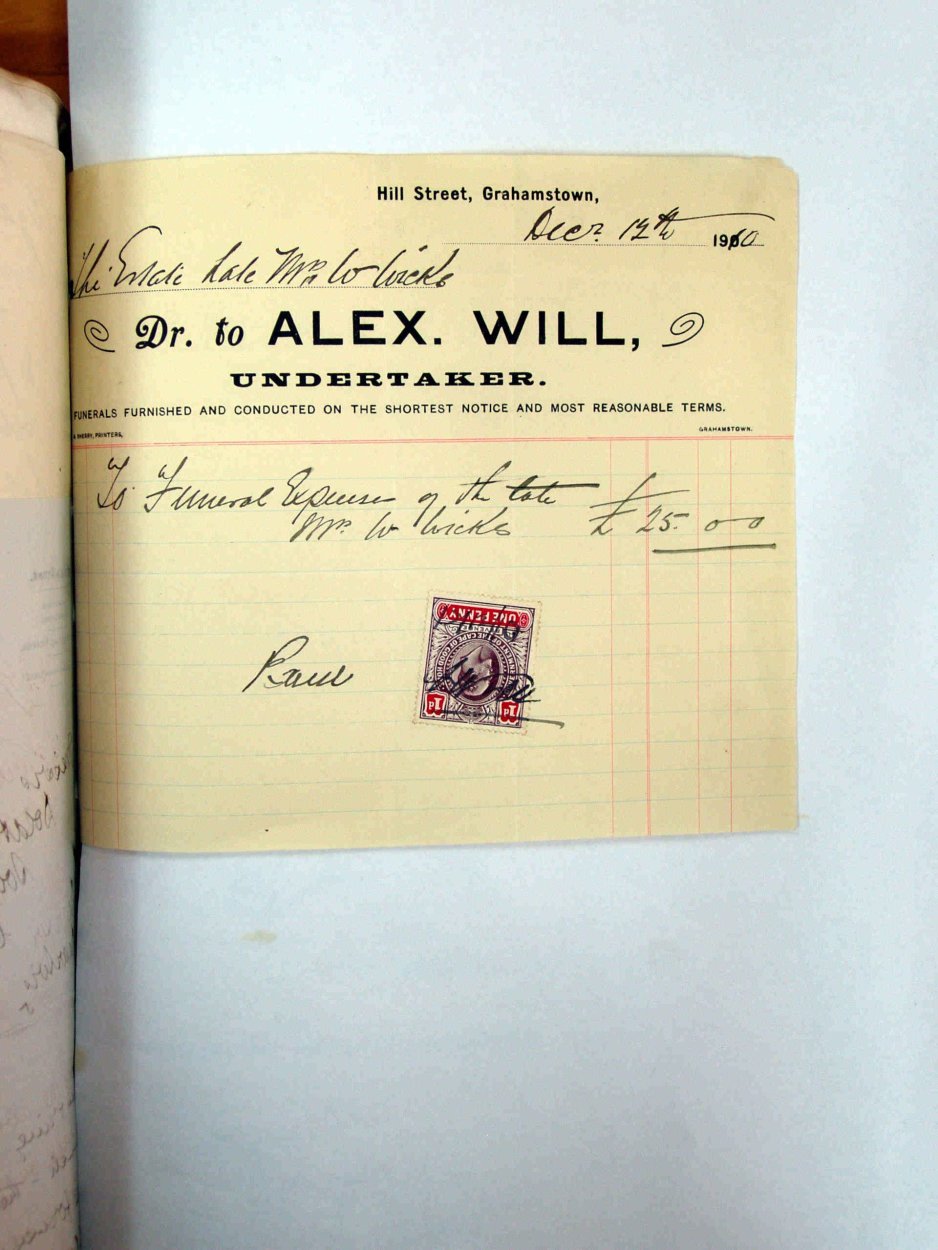 Hill Street, Grahamstown,
Decr. 12th 1910
The Estate late Mrs W Wicks
Dr. to ALEX. WILL,
UNDERTAKER.
FUNERALS FURNISHED AND CONDUCTED ON THE SHORTEST NOTICE AND MOST REASONABLE TERMS.
SHERRY, PRINTERS, GRAHAMSTOWN.
To Funeral Expenses of the late
Mrs W Wicks £ 25 - 0 - 0
ONE PENNY
1d 1d